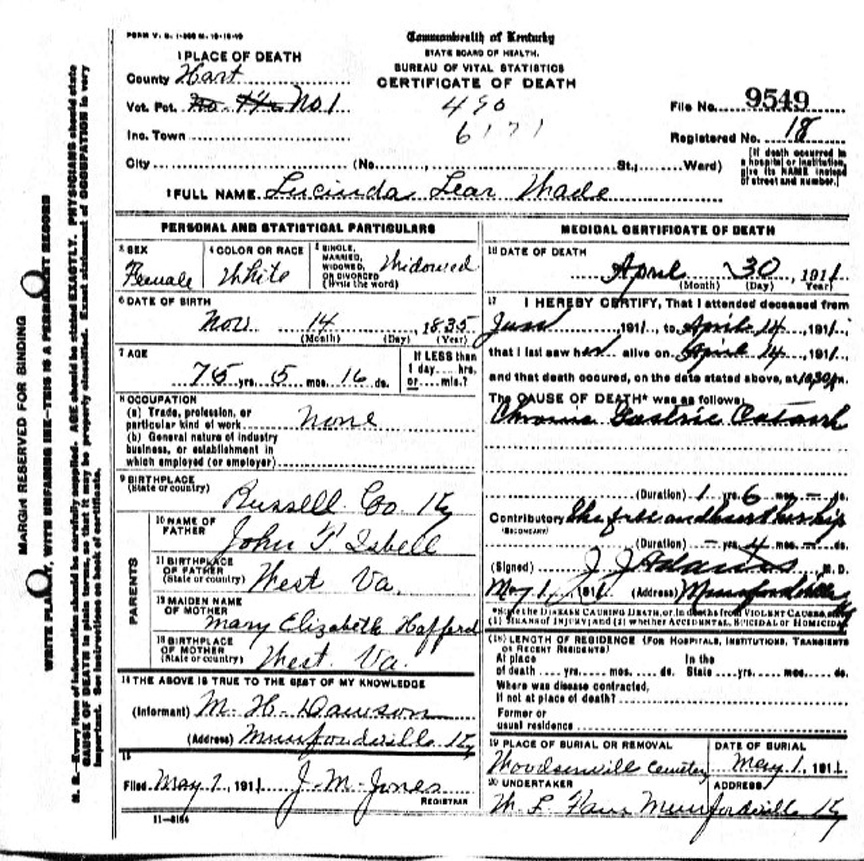 FORM V. S. 1-
Commonwealth of Kentucky
STATE BOARD OF HEALTH.
BUREAU OF VITAL STATISTICS
CERTIFICATE OF DEATH
1 PLACE OF DEATH
County Hart
Vot. Pct. No. No 1
Inc. Town
City (No. , St.; Ward)
490
6171
File No. 9549
Registered No. 18
[If death occurred in a hospital or institution, give its NAME instead of street and number.]
2 FULL NAME Lucinda Lear Wade
PERSONAL AND STATISTICAL PARTICULARS
3 SEX
Female
4 COLOR OR RACE
White
5 SINGLE, MARRIED, WIDOWED, OR DIVORCED (Write the word)
Widowed
6 DATE OF BIRTH
Nov 14 , 1835
(Month) (Day) (Year)
7 AGE
75 yrs. 5 mos. 16 ds.
If LESS than 1 day.... hrs. or.... min.?
8 OCCUPATION
(a) Trade, profession, or particular kind of work None
(b) General nature of industry business, or establishment in which employed (or employer)
9 BIRTHPLACE
(State or country)
Russell Co. Ky
PARENTS
10 NAME OF FATHER
John T. Isbell
11 BIRTHPLACE OF FATHER (State or country)
West Va.
12 MAIDEN NAME OF MOTHER
Mary Elizabeth Hafferd
13 BIRTHPLACE OF MOTHER (State or country)
West. Va.
14 THE ABOVE IS TRUE TO THE BEST OF MY KNOWLEDGE
(Informant) M. H. Dawson
(Address) Munfordville Ky
15
Filed May 1, 1911 J. M. Jones
REGISTRAR
11-8164
MEDICAL CERTIFICATE OF DEATH
16 DATE OF DEATH
April 30, 1911
(Month) (Day) (Year)
17 I HEREBY CERTIFY, That I attended deceased from
, 1911, to April 14, 1911,
that I last saw her alive on April 14, 1911,
and that death occured, on the date stated above, at 10,30 p m.
The CAUSE OF DEATH* was as follows:
Chronic Gastric Catarrh
(Duration) 1 yrs. 6 mos. – ds.
Contributory
(SECONDARY)
(Duration) – yrs. 4 mos. – ds.
(Signed) J J Adams M. D.
May 1, 1911 (Address) Munfordville Ky
*State the DISEASE CAUSING DEATH, or, in deaths from VIOLENT CAUSES, state (1) MEANS OF INJURY; and (2) whether ACCIDENTAL, SUICIDAL or HOMICIDAL
(18) LENGTH OF RESIDENCE (FOR HOSPITALS, INSTITUTIONS, TRANSIENTS OR RECENT RESIDENTS)
At place of death .... yrs. .... mos. .... ds. In the State .... yrs. .... mos. .... ds.
Where was disease contracted, If not at place of death?
Former or usual residence
19 PLACE OF BURIAL OR REMOVAL
Woodsonville Cemetery
DATE OF BURIAL
May 1, 1911
20 UNDERTAKER
ADDRESS
Munfordville Ky
MARGIN RESERVED FOR BINDING
WRITE PLAINLY, WITH UNFADING INK—THIS IS A PERMANENT RECORD
N. B.—Every item of information should be carefully supplied. AGE should be stated EXACTLY. PHYSICIANS should state
CAUSE OF DEATH in plain terms, so that it may be properly classified. Exact statement of OCCUPATION is very
important. See instructions on back of certificate.